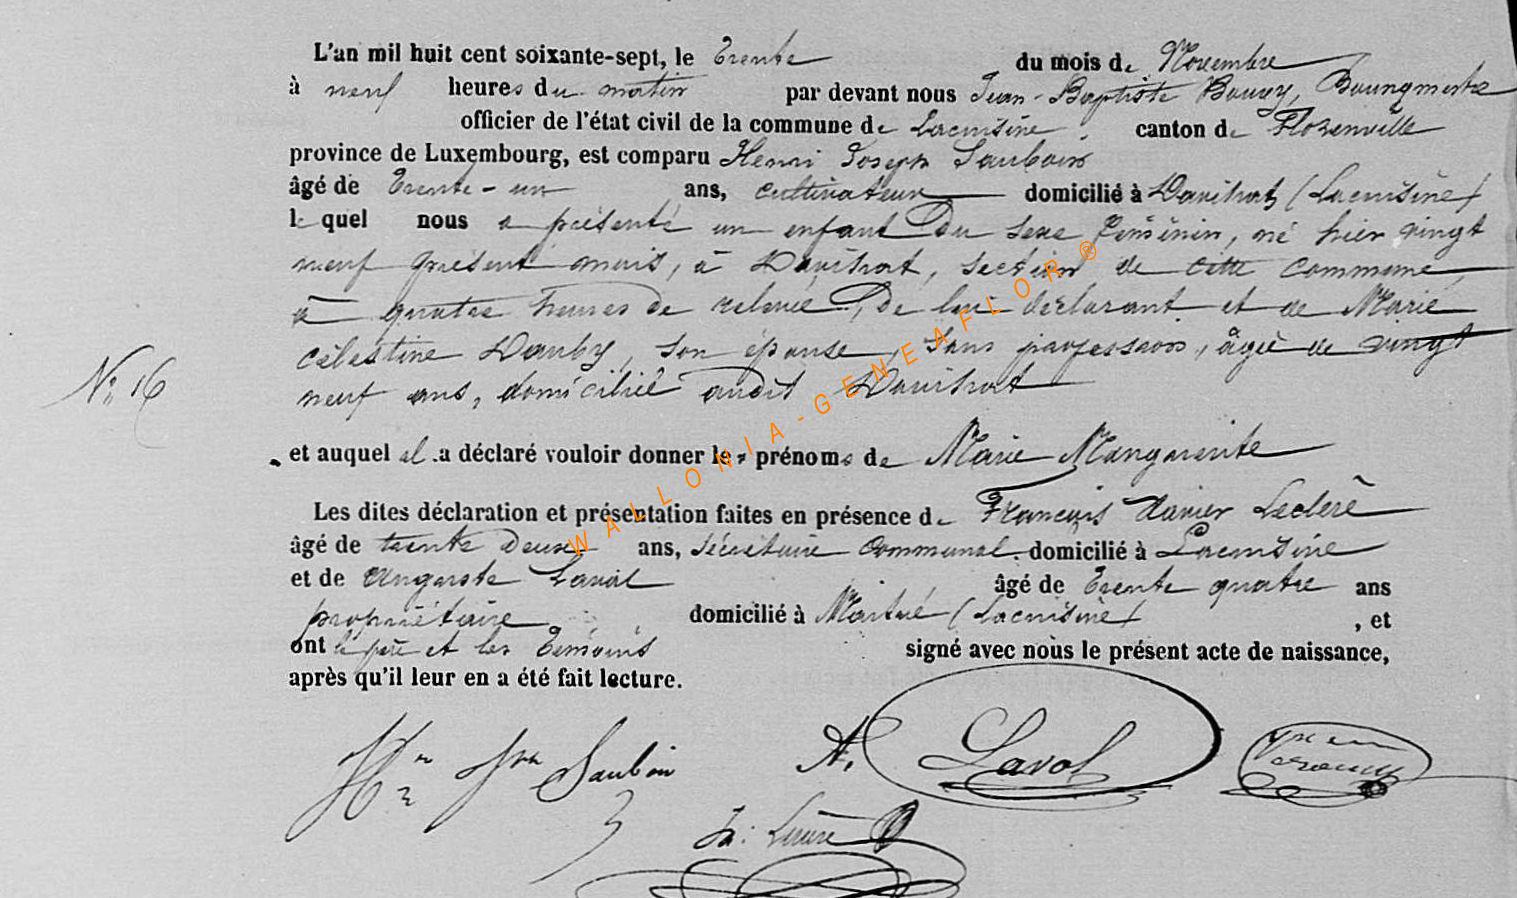 L'an mil huit cent soixante-sept, le Trente du mois de Novembre
à neuf heures du matin par devant nous Jean-Baptiste Bouvy, Bourgmestre
officier de l'état civil de la commune de Lacuisine, canton de Florenville
province de Luxembourg, est comparu Henri Joseph
âgé de Trente-un ans, cultivateur domicilié à (Lacuisine)
lequel nous a présenté un enfant du sexe féminin, né hier vingt
neuf présent mois, à section de cette commune,
à quatre heures de relevée, de lui déclarant et de Marie
célestine son épouse, sans profession, âgée de vingt
neuf ans, domicilié audit
N° 16
et auquel il a déclaré vouloir donner les prénoms de Marie Marguerite
Les dites déclaration et présentation faites en présence de François Xavier Leclère
âgé de trente deux ans, sécrétaire communal domicilié à Lacuisine
et de Auguste Laval âgé de Trente quatre ans
propriétaire domicilié à Martué (Lacuisine), et
ont le père et les témoins signé avec nous le présent acte de naissance,
après qu'il leur en a été fait lecture.
A. Laval
WALLONIA-GENEAFLOR®